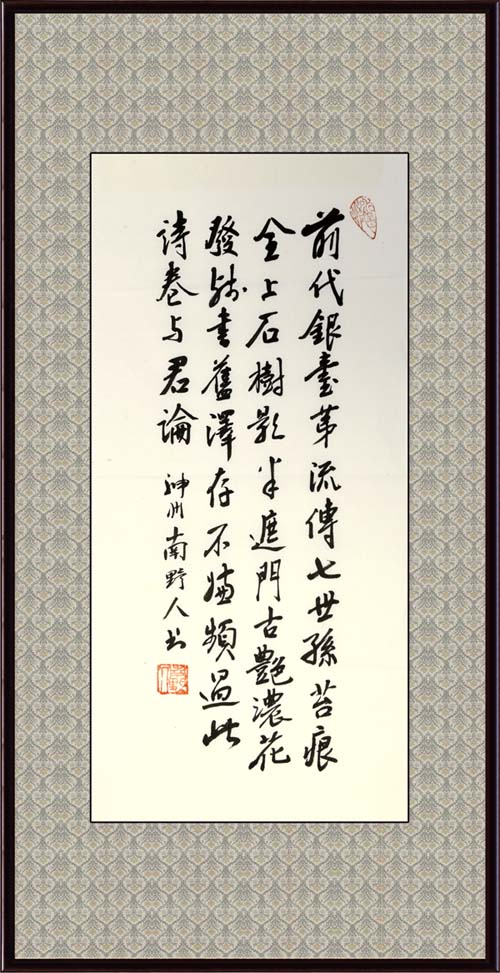 前代銀臺苐流傳七世孫苔痕
全上石樹影半遮門古艷濃花
發殘書舊澤存不嫌頻過此
詩卷与君論 神州南野人书